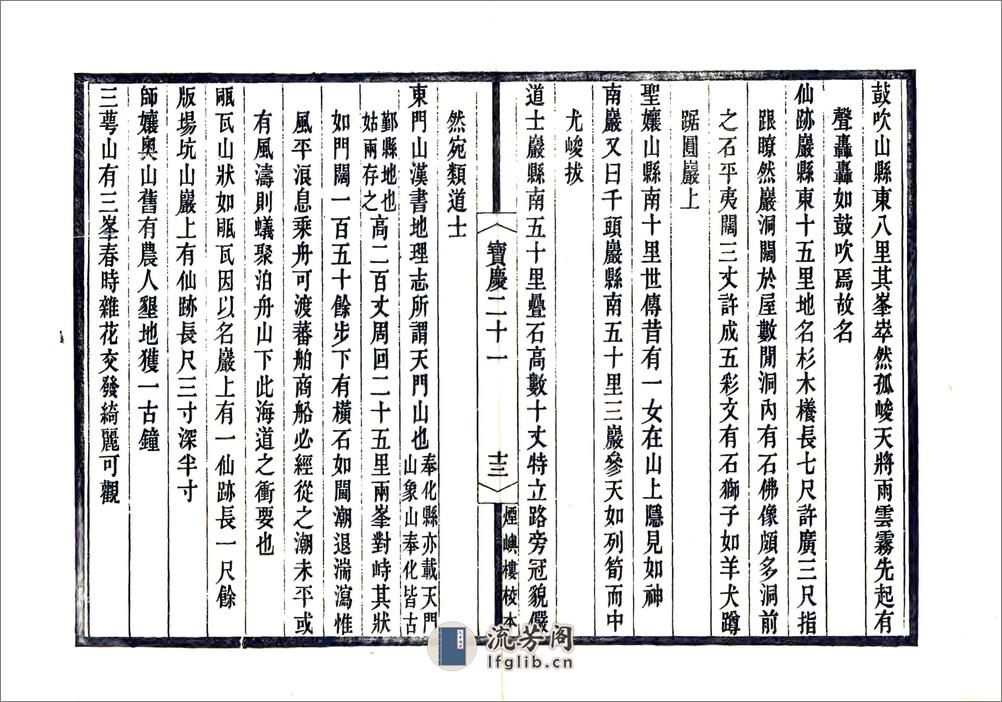 鼓吹山縣東八里其峯崒然孤峻天將雨雲霧先起有
聲轟轟如鼓吹焉故名
仙跡巖縣東十五里地名杉木棬長七尺許廣三尺指
跟瞭然巖洞闊於屋數閒洞內有石佛像頗多洞前
之石平夷闊三丈許成五彩文有石獅子如羊犬蹲
踞圓巖上
聖孃山縣南十里世傳昔有一女在山上隱見如神
南巖又曰千頭巖縣南五十里三巖參天如列筍而中
尤峻拔
道士巖縣南五十里疊石高數十丈特立路旁冠貌儼
寶慶二十一
十三
煙嶼樓校本
然宛類道士
東門山漢書地理志所謂天門山也奉化縣亦載天門
山象山奉化皆古
鄞縣地也
姑兩存之
高二百丈周回二十五里兩峯對峙其狀
如門闊一百五十餘步下有橫石如閫潮退湍瀉惟
風平浪息乘舟可渡蕃舶商船必經從之潮未平或
有風濤則蟻聚泊舟山下此海道之衝要也
瓯瓦山狀如瓯瓦因以名巖上有一仙跡長一尺餘
版場坑山巖上有仙跡長尺三寸深半寸
師孃奧山舊有農人墾地獲一古鐘
三萼山有三峯春時雜花交發綺麗可觀
流芳阁
lfglib.cn